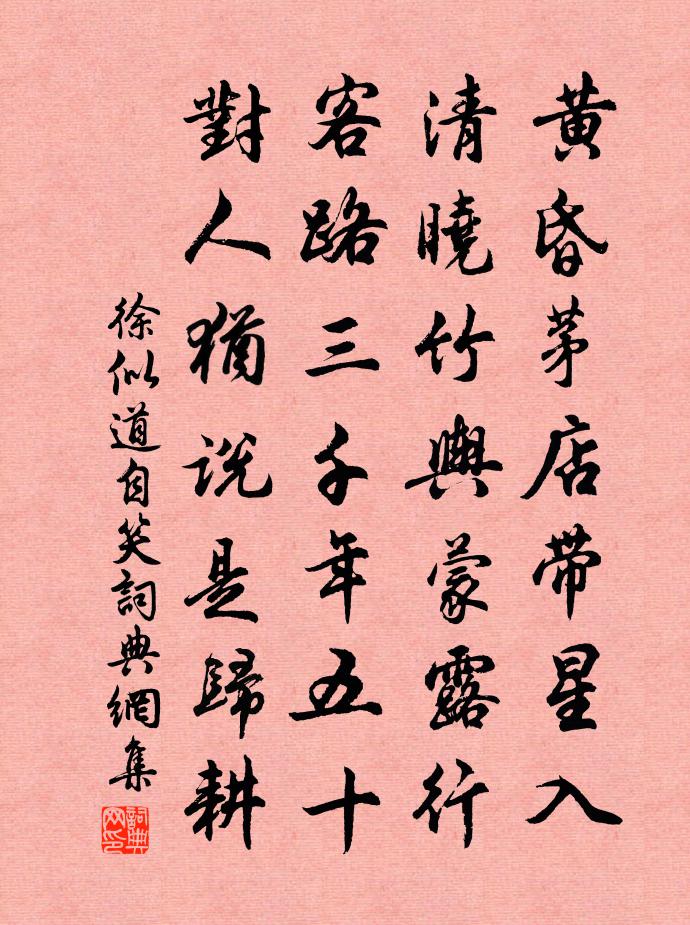 黄昏茅店带星入
清曉竹輿蒙露行
客路三千年五十
對人猶説是歸耕
徐似道自笑詞典網集
詞典网印